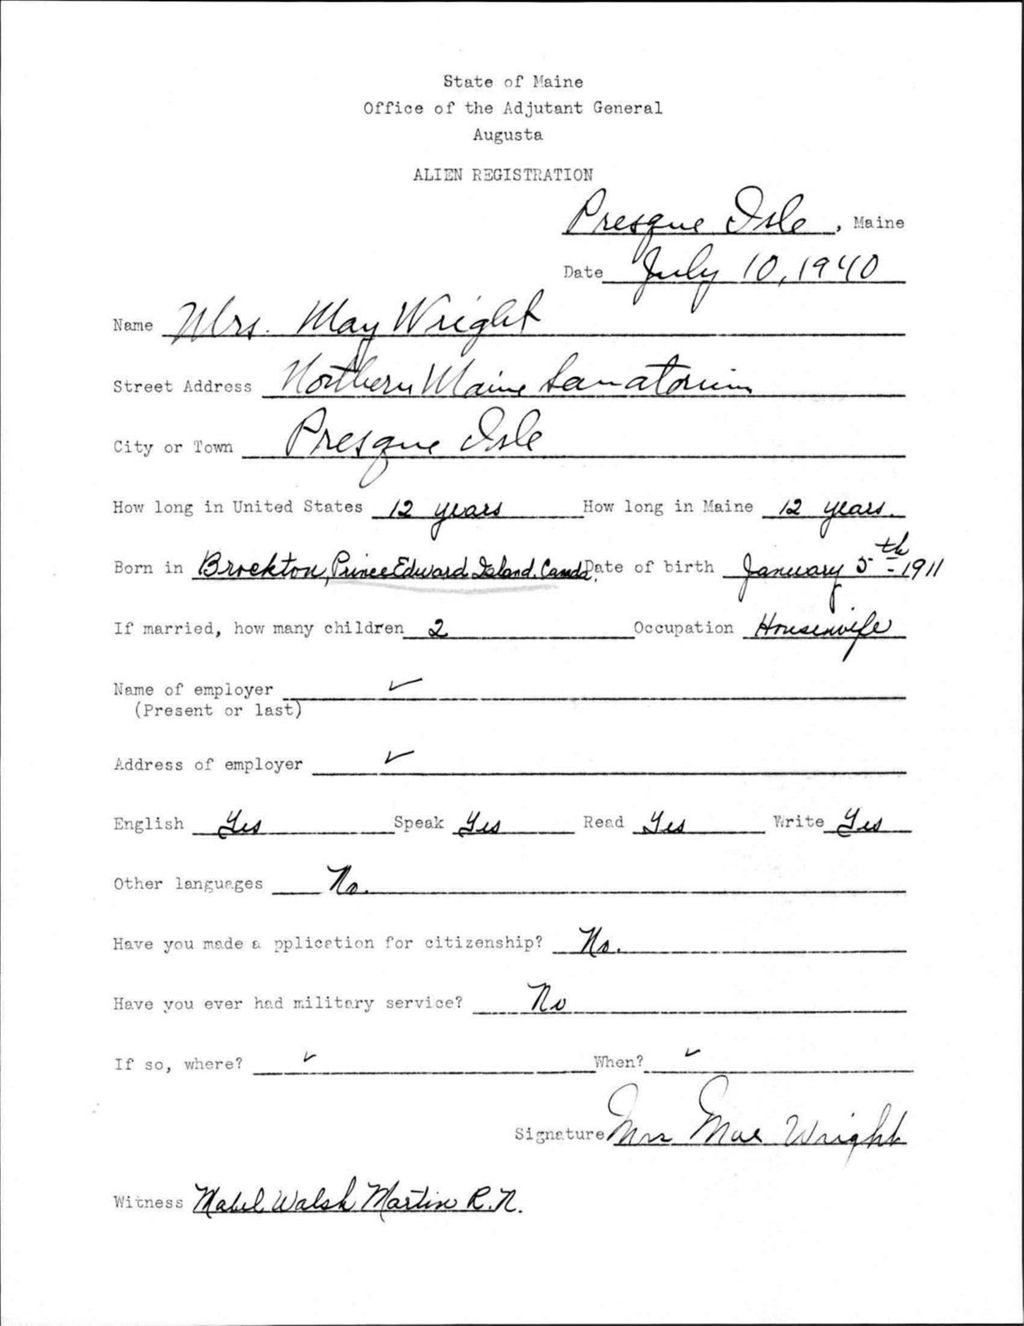 State of Maine
Office of the Adjutant General
Augusta
ALIEN REGISTRATION
Presque Isle, Maine
Date July 10, 1940
Name Mrs. May Wright
Street Address Northern Maine Sanatorium
City or Town Presque Isle
How long in United States 12 years How long in Maine 12 years.
Born in Brockton, Prince Edward Island, Canda. Date of birth January 5th - 1911
If married, how many children 2 Occupation Housewife
Name of employer ✓
(Present or last)
Address of employer ✓
English Yes Speak Yes Read Yes Write Yes
Other languages No.
Have you made a pplication for citizenship? No.
Have you ever had military service? No
If so, where? ✓ When? ✓
Signature Mrs Mae Wright
Witness Mabel Walsh Martin R.N.